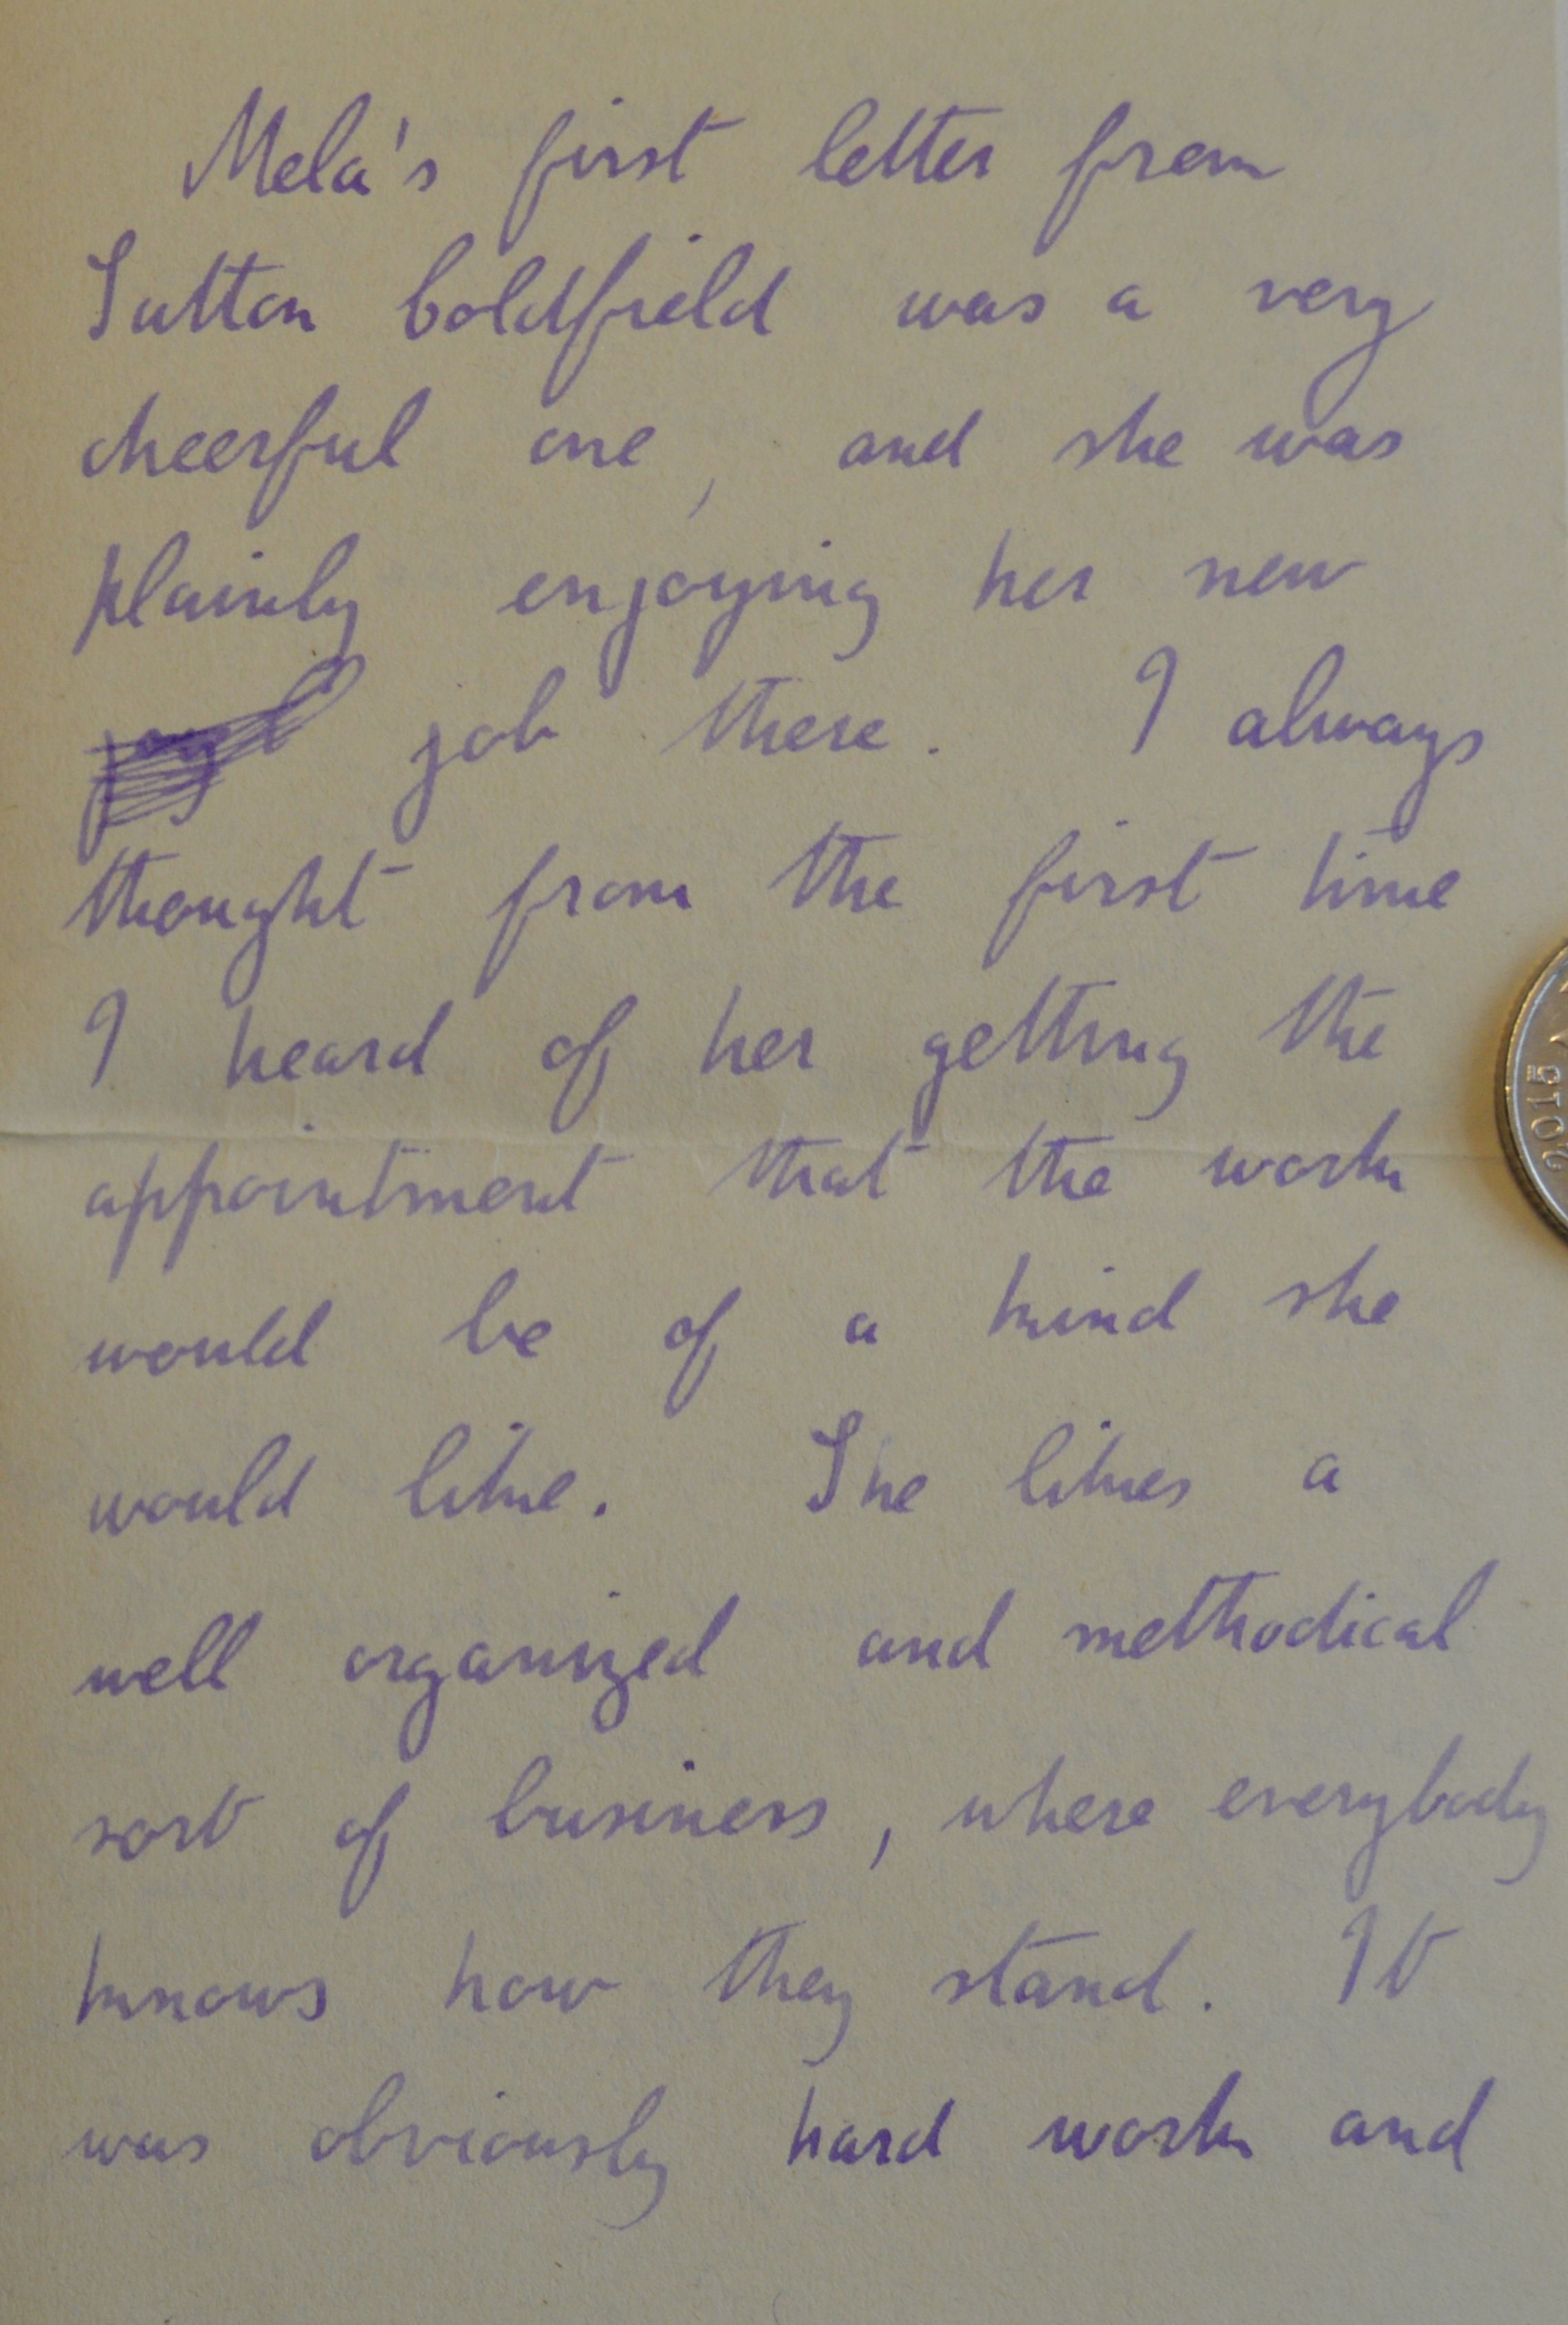 Mela's first letter from
Sutton Coldfield was a very
cheerful one, and she was
plainly enjoying her new
job there. I always
thought from the first time
I heard of her getting the
appointment that the work
would be of a kind she
would like. She likes a
well organized and methodical
sort of business, where everybody
knows how they stand. It
was obviously hard work and
2015